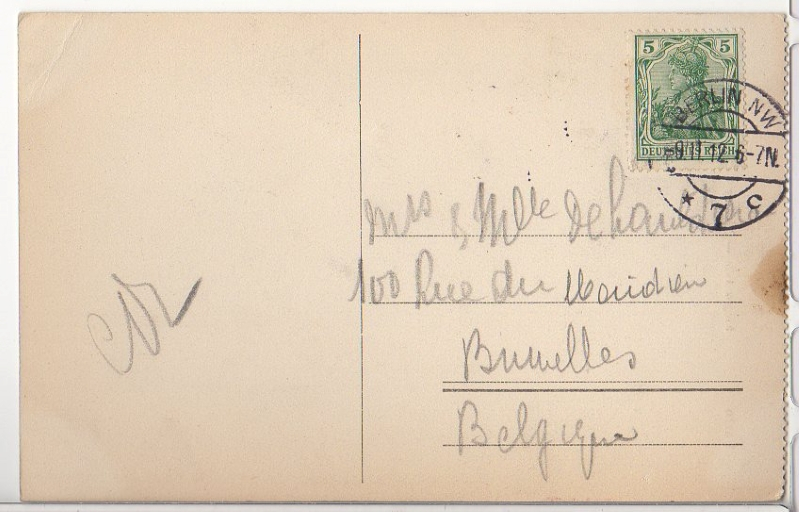 5 5
DEUTSCHES REICH
BERLIN NW
9.11.12.6-7N.
* 7 c
Mrs & Mlle
100 Rue du
Bruxelles
Belgique